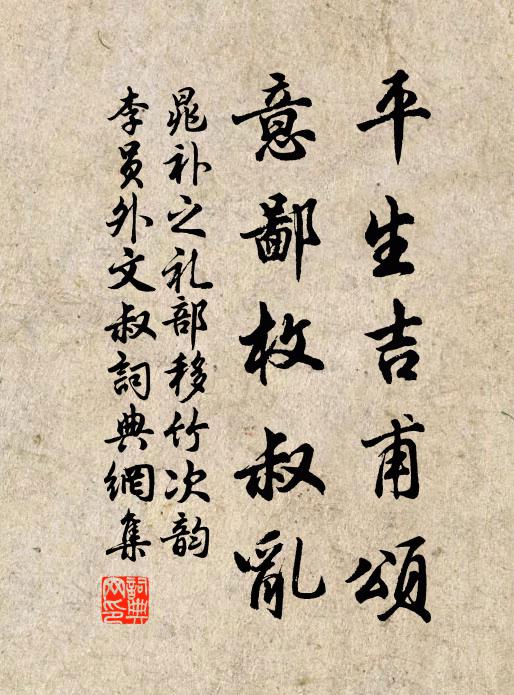 平生吉甫頌
意鄙枚叔亂
晁补之礼部移竹次韵
李员外文叔詞典網集